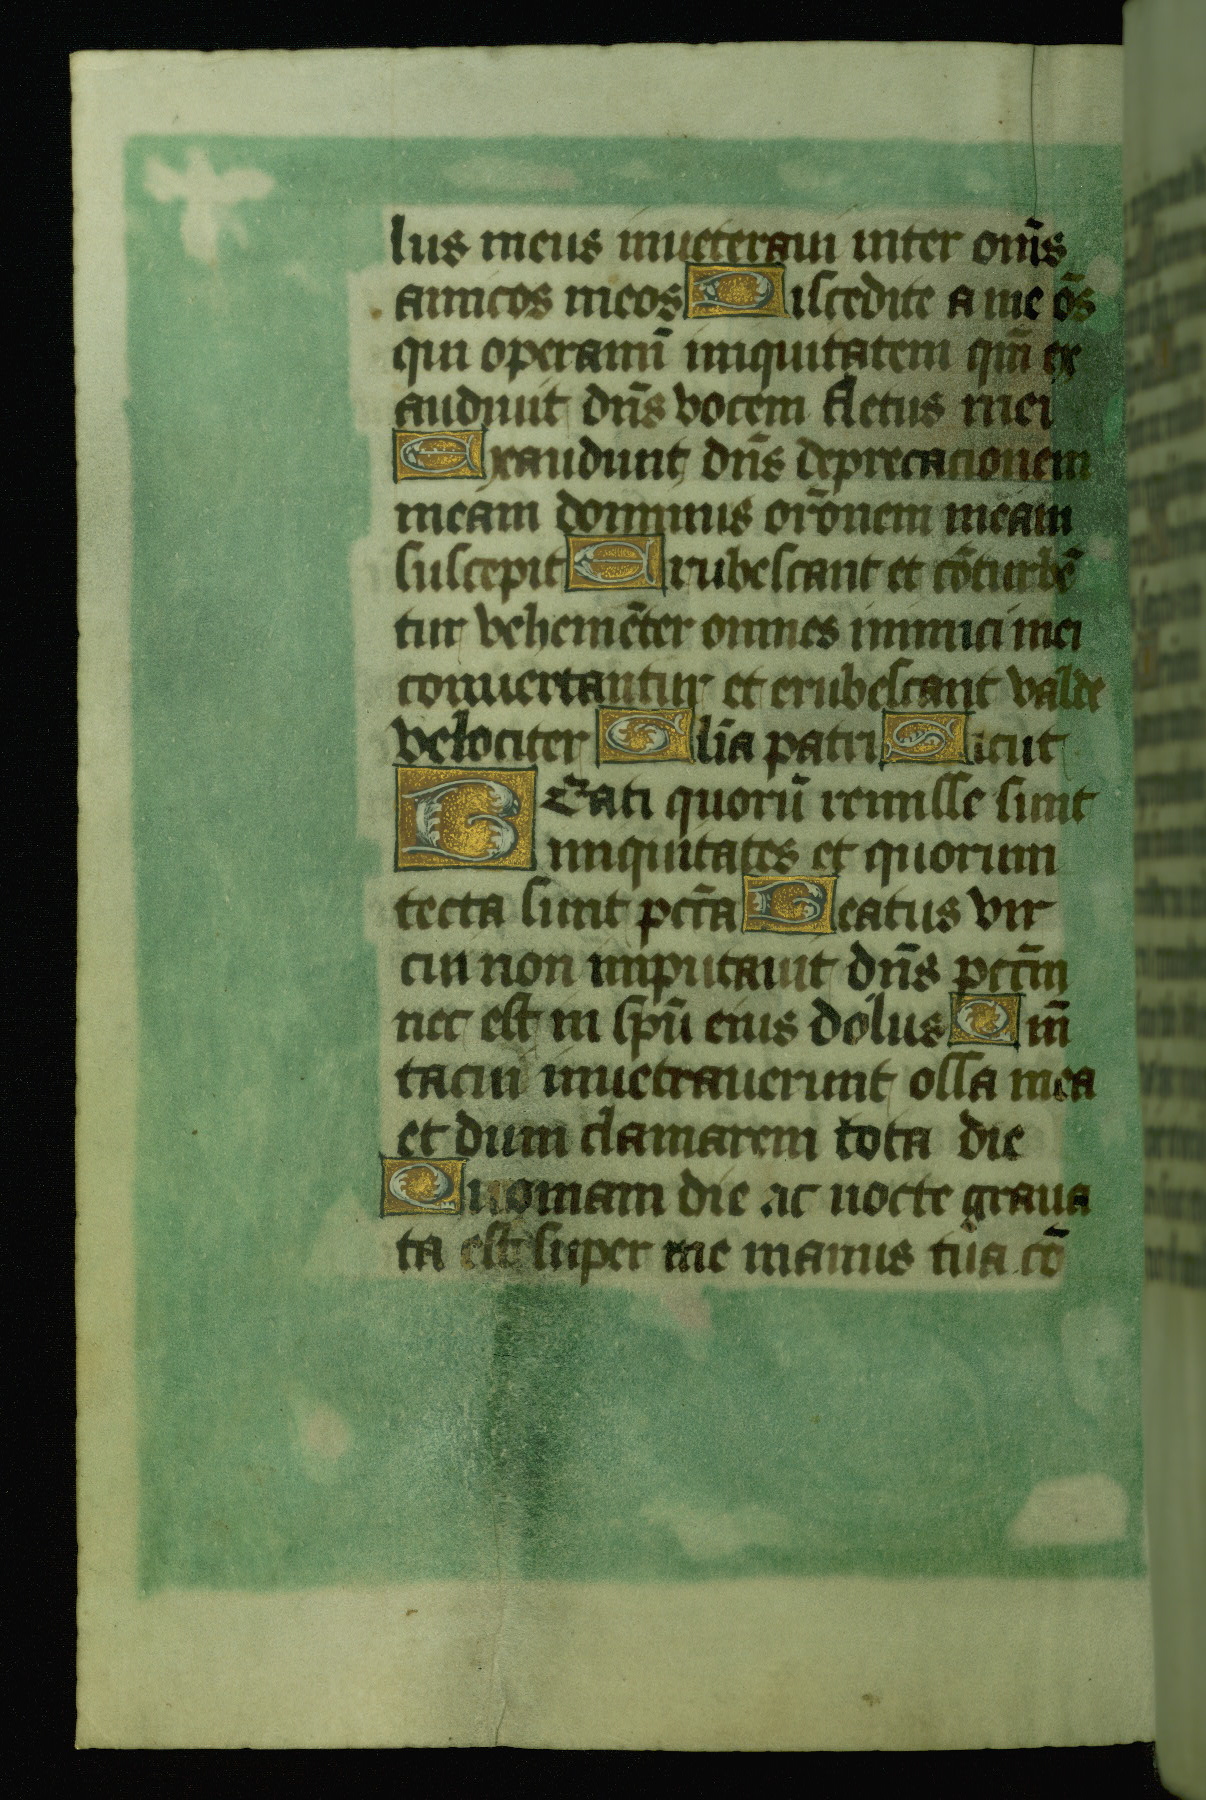 lus meus inueteraui inter om̄s
amicos meos Discedite a me ōs
qui operamī iniquitatem qm̄ ex
audiuit dn̄s vocem fletus mei
Exaudiuit dn̄s deprecationem
meam dominus or̄onem meam
suscepit Erubescant et cōturbē
tur vehemēter omnes inimici mei
conuertantur et erubescant valde
velociter Gl̄ia patri Sicut
BEati quorū remisse sunt
iniquitates et quorum
tecta sunt pctā Beatus vir
cui non imputauit dn̄s pctm̄
nec est in spū eius dolus Qm̄
tacui inuetrauerunt ossa mea
et dum clamarem tota die
Quoniam die ac nocte graua
ta est super me manus tua cō